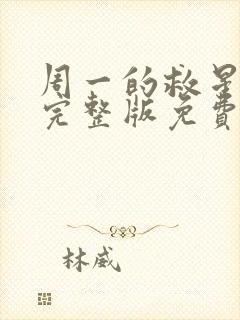 周一的救星
完整版免費
林威